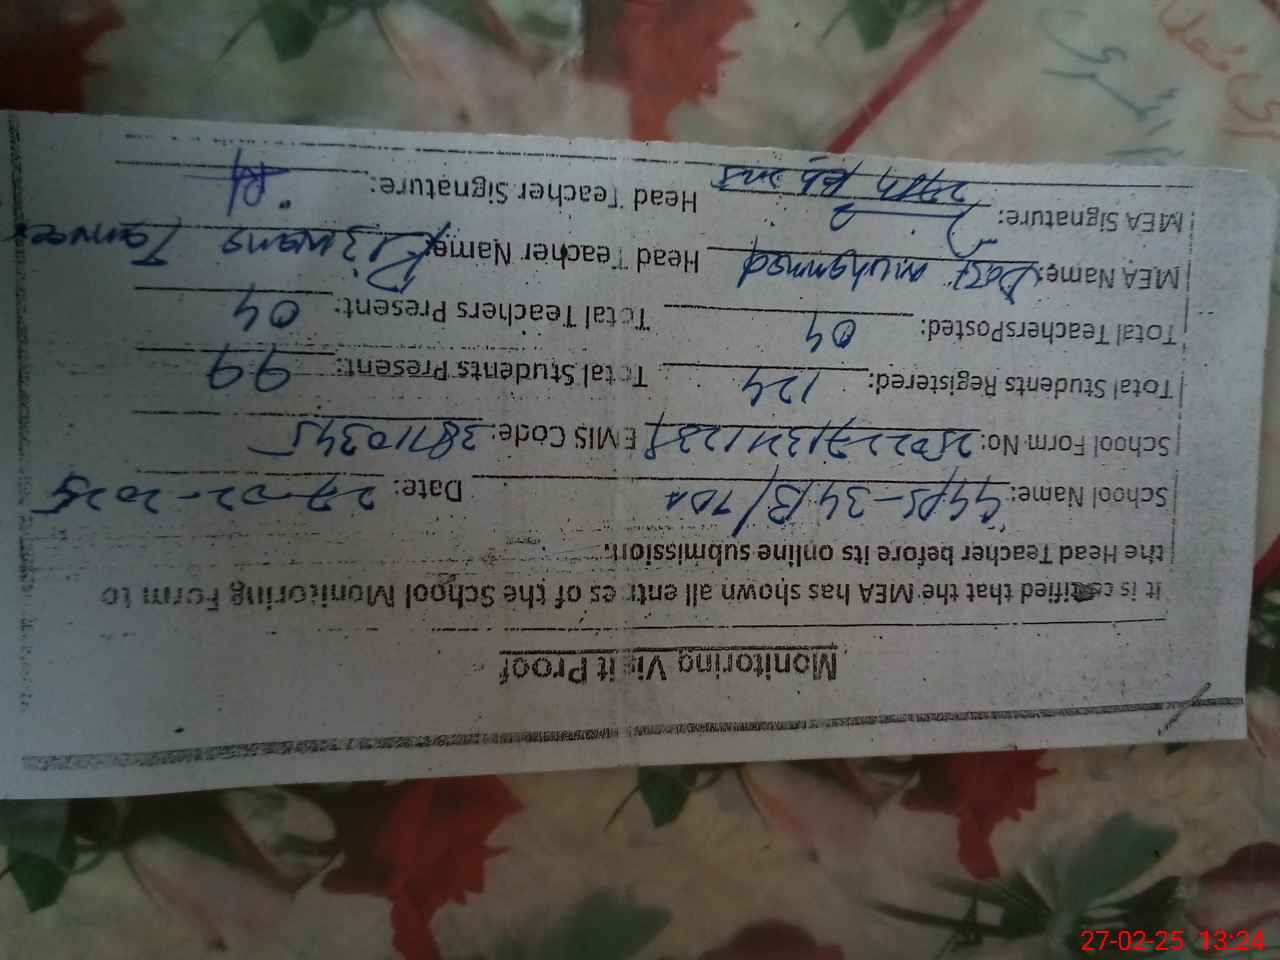 Monitoring Visit Proof
It is certified that the MEA has shown all entries of the School Monitoring Form to
the Head Teacher before its online submission.
School Name: GGPS-34B/TDA Date: 27-02-2025
School Form No: EMIS Code: 38710345
Total Students Registered: 124 Total Students Present: 99
Total TeachersPosted: 04 Total Teachers Present: 04
MEA Name: Dost muhammad Head Teacher Name: Tanveer
MEA Signature: Head Teacher Signature:
27-02-25 13:24